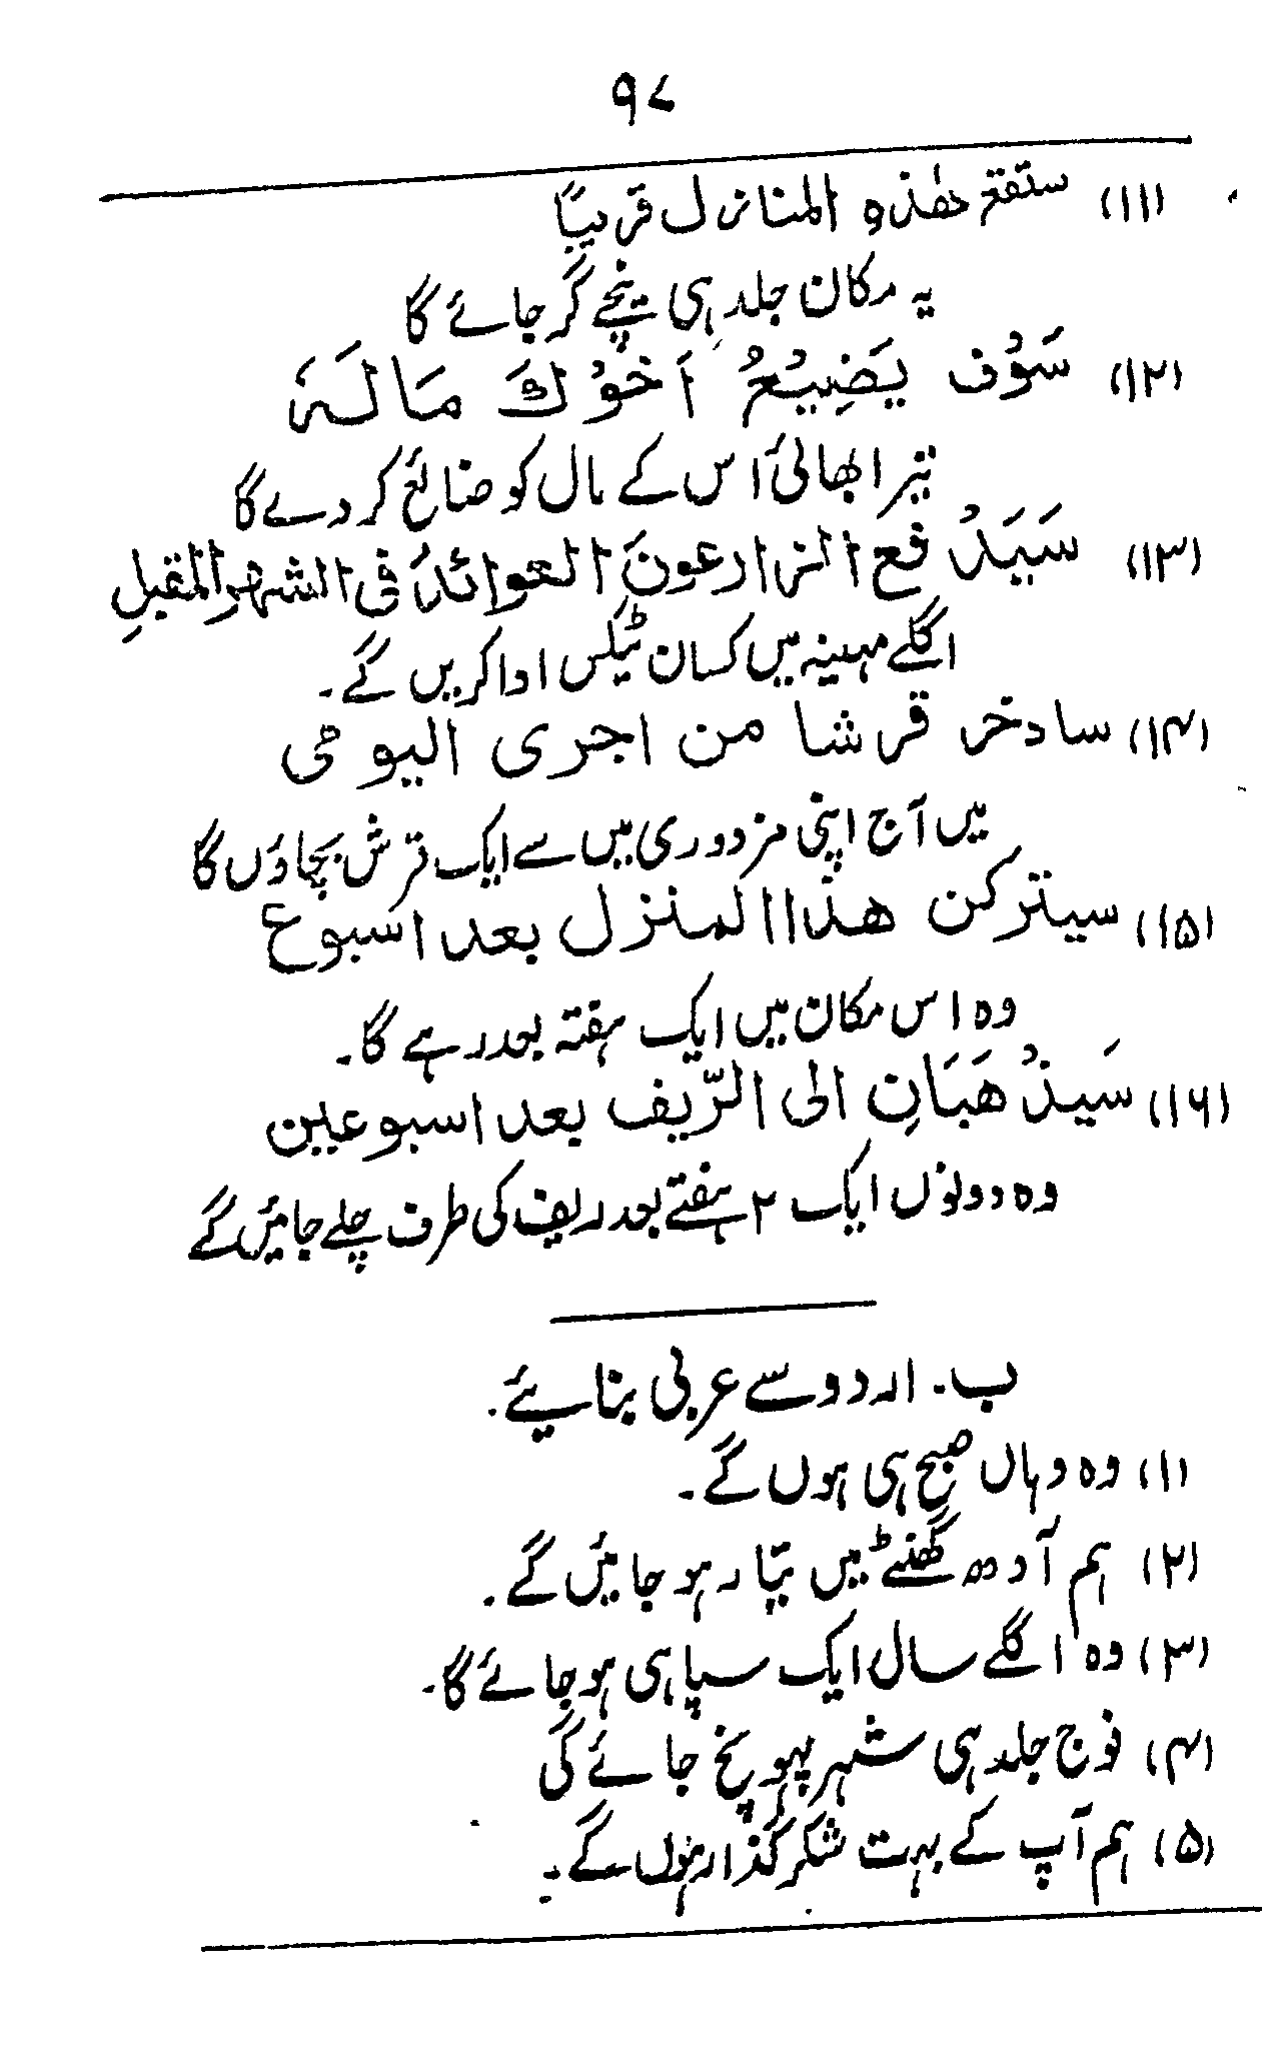 ۹۷
(۱۱) ستقع هٰذه المنازل قریبًا
یہ مکان جلد ہی نیچے گر جائے گا
(۱۲) سَوْف یَضِیْعُ اَخُوْكَ مَالَہٗ
تیرا بھائی اس کے مال کو ضائع کر دے گا
(۱۳) سَیَدْفع الزارعونَ العوائدَ فی الشھر المقبلِ
اگلے مہینہ میں کسان ٹیکس ادا کریں گے۔
(۱۴) سادخر قرشا من اجری الیومی
میں آج اپنی مزدوری میں سے ایک قرش بچاؤں گا
(۱۵) سیترکن ھذا المنزل بعد اسبوع
وہ اس مکان میں ایک ہفتہ بعد رہے گا۔
(۱۶) سَیذْھَبَانِ الی الرّیف بعد اسبوعین
وہ دونوں ایک ۲ ہفتے بعد ریف کی طرف چلے جائیں گے
ب۔ اردو سے عربی بنایئے۔
(۱) وہ وہاں صبح ہی ہوں گے۔
(۲) ہم آدھ گھنٹے میں تیار ہو جائیں گے۔
(۳) وہ اگلے سال ایک سپاہی ہو جائے گا۔
(۴) فوج جلد ہی شہر پہونچ جائے گی
(۵) ہم آپ کے بہت شکر گذار ہوں گے۔